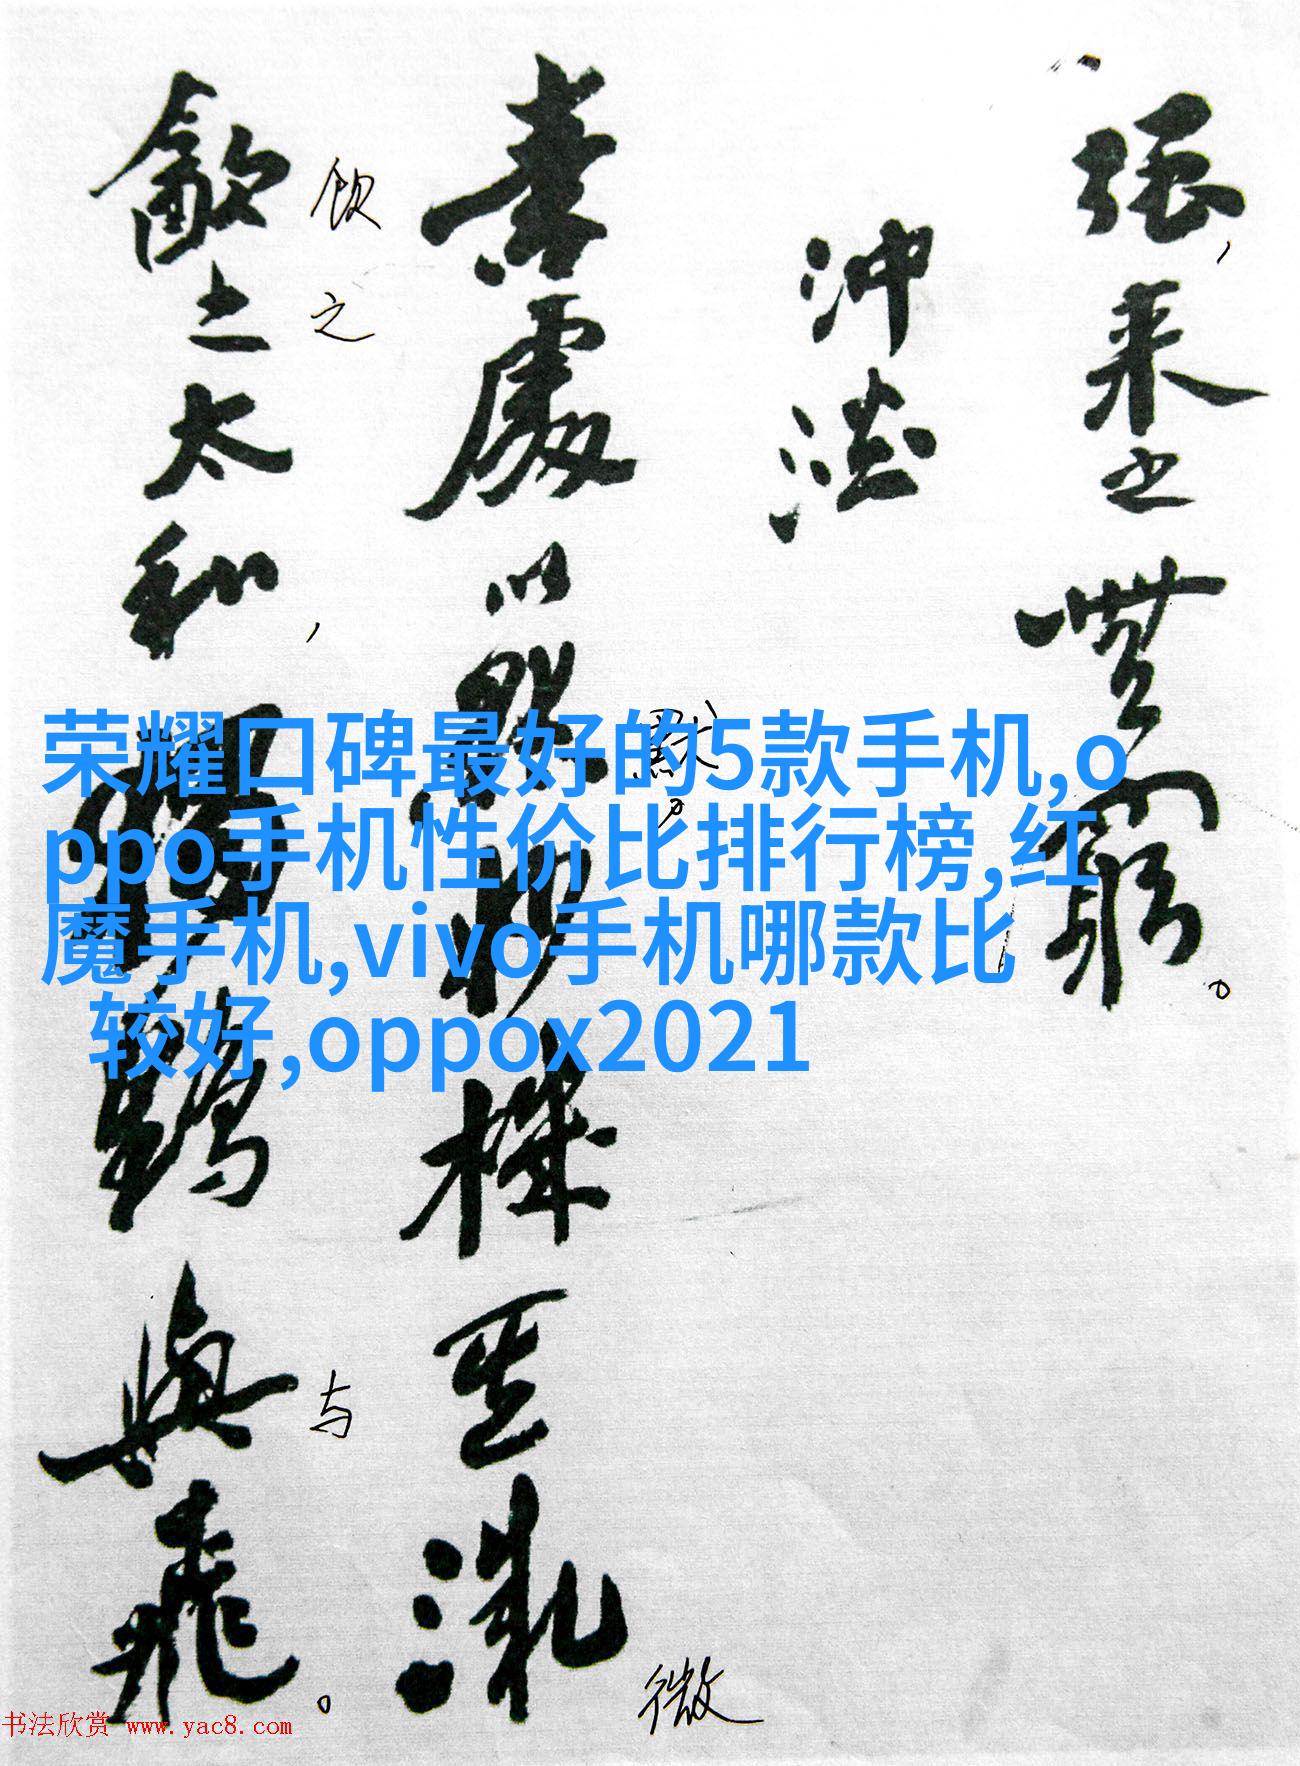 强，来之無窮。
沖澹
素處以默 妙機其微
飲之太和，獨鶴與飛。
饮
之
默。
与
微
荣耀口碑最好的5款手机,o
ppo手机性价比排行榜,红
魔手机,vivo手机哪款比
较好,oppox2021
书法欣赏 www.yac8.com